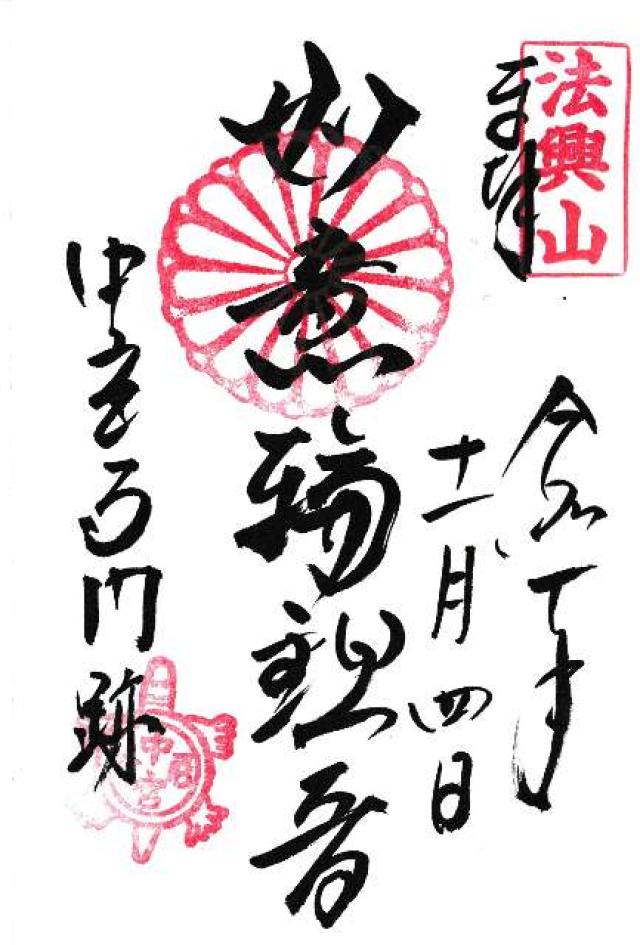 法興山
奉拝
令和
十一月四日
如意輪観音
中宮寺門跡
中宮